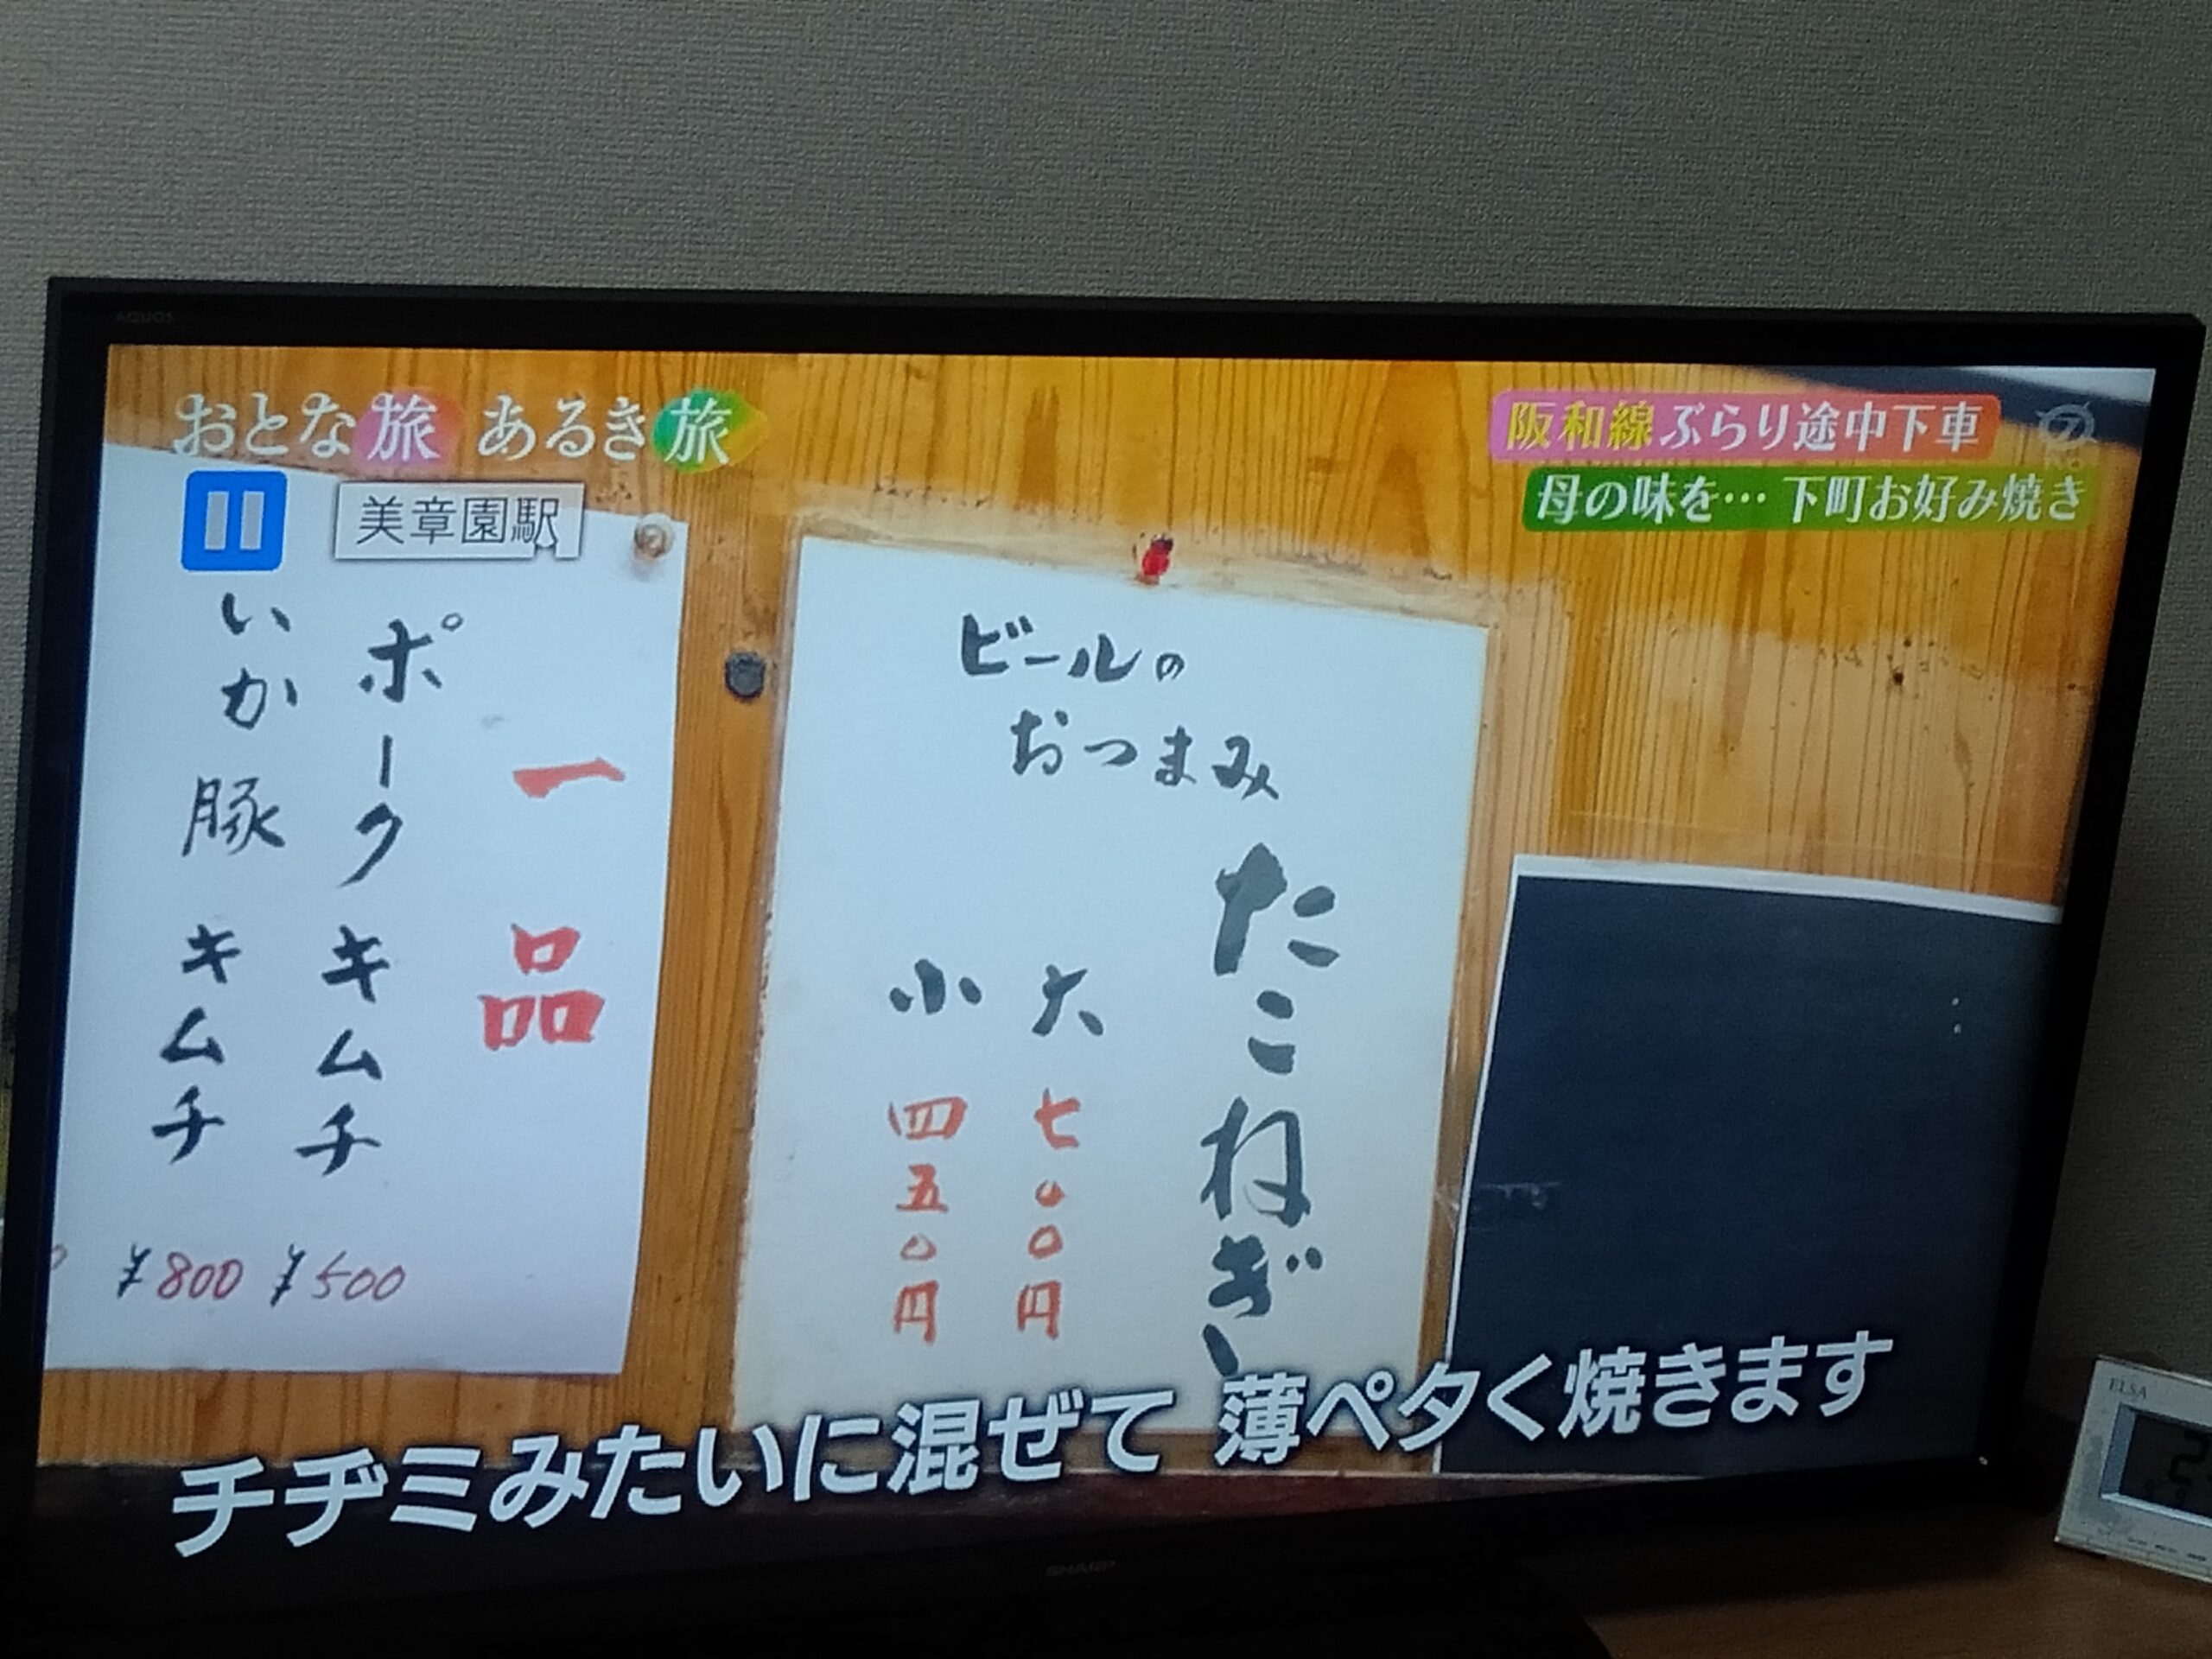 AQUOS
おとな旅 あるき旅
阪和線ぶらり途中下車
母の味を… 下町お好み焼き
美章園駅
一品
ポークキムチ ¥500
いか豚キムチ ¥800
ビールの
おつまみ
たこねぎ
大 七〇〇円
小 四五〇円
チヂミみたいに混ぜて 薄ペタく焼きます
SHARP
ELSA